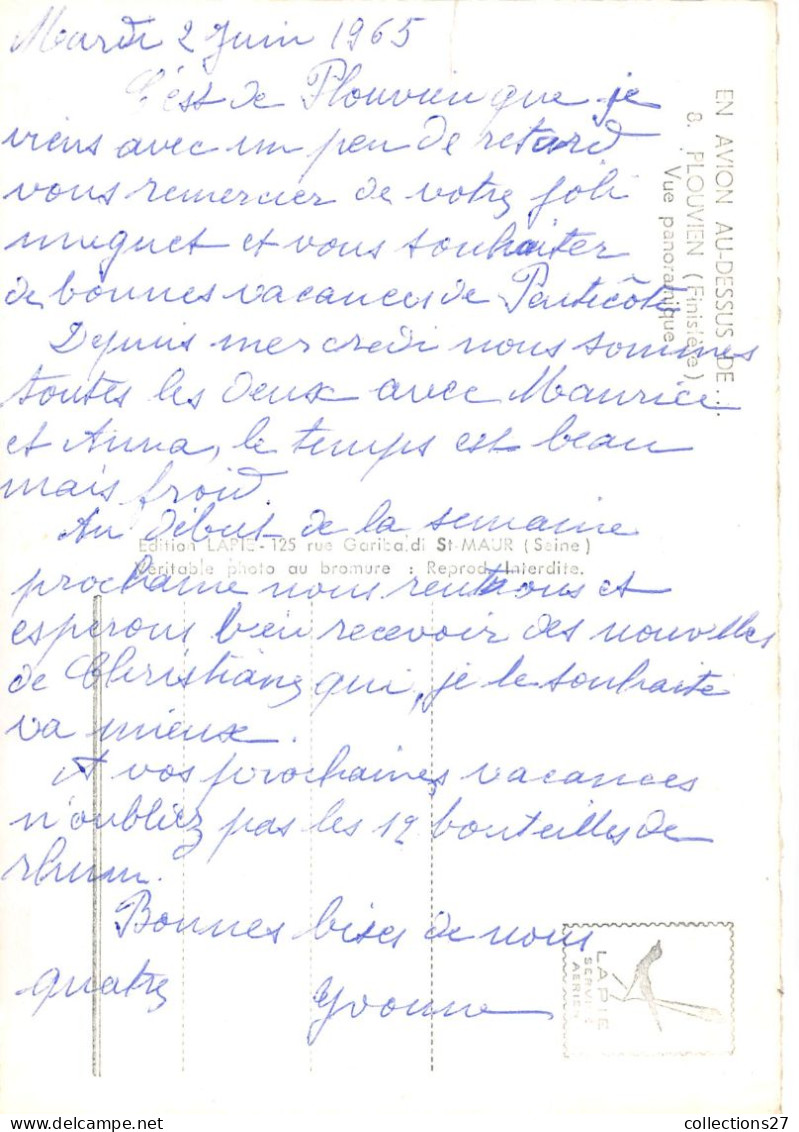 Mardi 2 Juin 1965
C'est de Plouvien que je
viens avec un peu de retard
vous remercier de votre joli
muguet et vous souhaiter
de bonnes vacances de Pentecôte
Depuis mercredi nous sommes
toutes les deux avec Maurice
et Anna, le temps est beau
mais froid.
Au début de la semaine
prochaine nous rentrons et
esperons bien recevoir des nouvelles
de Christiane qui, je le souhaite
va mieux.
A vos prochaines vacances
n'oubliez pas les 12 bouteilles de
rhum.
Bonnes bises de nous
quatre
Yvonne
EN AVION AU-DESSUS DE ...
8. PLOUVIEN (Finistère)
Vue panoramique
Edition LAPIE - 125 rue Garibaldi St-MAUR (Seine)
Véritable photo au bromure : Reprod. Interdite.
LAPIE
SERVICE
AERIEN
collections27